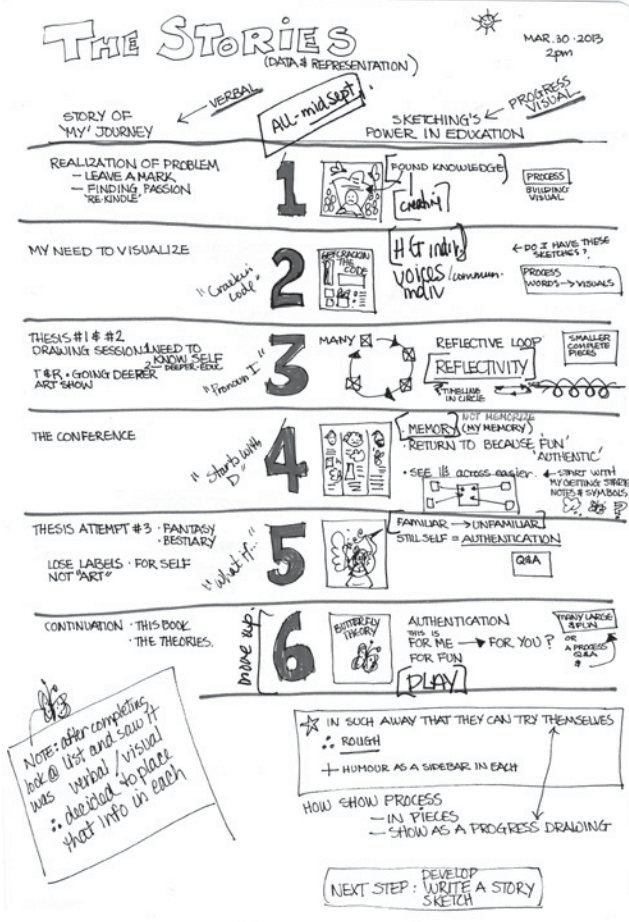 THE STORIES
(DATA & REPRESENTATION)
MAR. 30 · 2013
2pm
STORY OF
'MY' JOURNEY
VERBAL
ALL - mid sept.
SKETCHING'S
POWER IN EDUCATION
PROGRESS
VISUAL
REALIZATION OF PROBLEM
— LEAVE A MARK
— FINDING PASSION
'RE-KINDLE'
1
FOUND KNOWLEDGE
PROCESS
BUILDING
VISUAL
MY NEED TO VISUALIZE
"Crackin'
code"
2
CRACKIN
THE
CODE
HG indiv
voices /commun.
indiv
← DO I HAVE THESE
SKETCHES?
PROCESS
WORDS → VISUALS
THESIS #1 & #2
DRAWING SESSION 1 NEED TO
KNOW SELF
2 — DEEPER · EDUC
T & R · GOING DEEPER
ART SHOW
"Pronoun I"
3
MANY
REFLECTIVE LOOP
REFLECTIVITY
TIMELINE
IN CIRCLE
SMALLER
COMPLETE
PIECES
THE CONFERENCE
"Starts with
D"
4
NOT MEMORIZE
· MEMORY (MY MEMORY)
· RETURN TO BECAUSE FUN'
'AUTHENTIC'
· SEE across easier.
← START WITH
MY GETTING STARTED
NOTES & SYMBOLS
?
THESIS ATTEMPT #3 · FANTASY
· BESTIARY
LOSE LABELS · FOR SELF
NOT "ART"
"What if..."
5
FAMILIAR → UNFAMILIAR
STILL SELF = AUTHENTICATION
Q&A
CONTINUATION · THIS BOOK
· THE THEORIES.
move up.
6
BUTTERFLY
THEORY
AUTHENTICATION
THIS IS
FOR ME → FOR YOU?
FOR FUN
PLAY
MANY LARGE
& FUN
OR
A PROCESS
Q&A
NOTE: after completing
look @ list and saw it
was verbal / visual
∴ decided to place
that info in each
☆ IN SUCH AWAY THAT THEY CAN TRY THEMSELVES
∴ ROUGH
+ HUMOUR AS A SIDEBAR IN EACH
HOW SHOW PROCESS
— IN PIECES
— SHOW AS A PROGRESS DRAWING
DEVELOP
NEXT STEP : WRITE A STORY
SKETCH